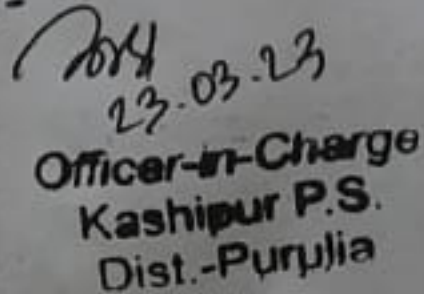 23.03.23
Officer-in-Charge
Kashipur P.S.
Dist.-Purulia